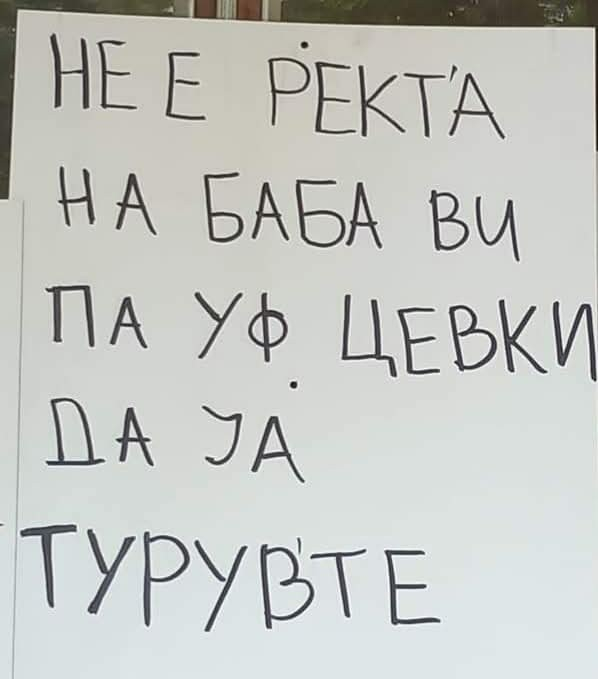 НЕ Е РЕКТ'А
НА БАБА ВИ
ПА УФ ЦЕВКИ
ДА ЈА
ТУРУВ'ТЕ